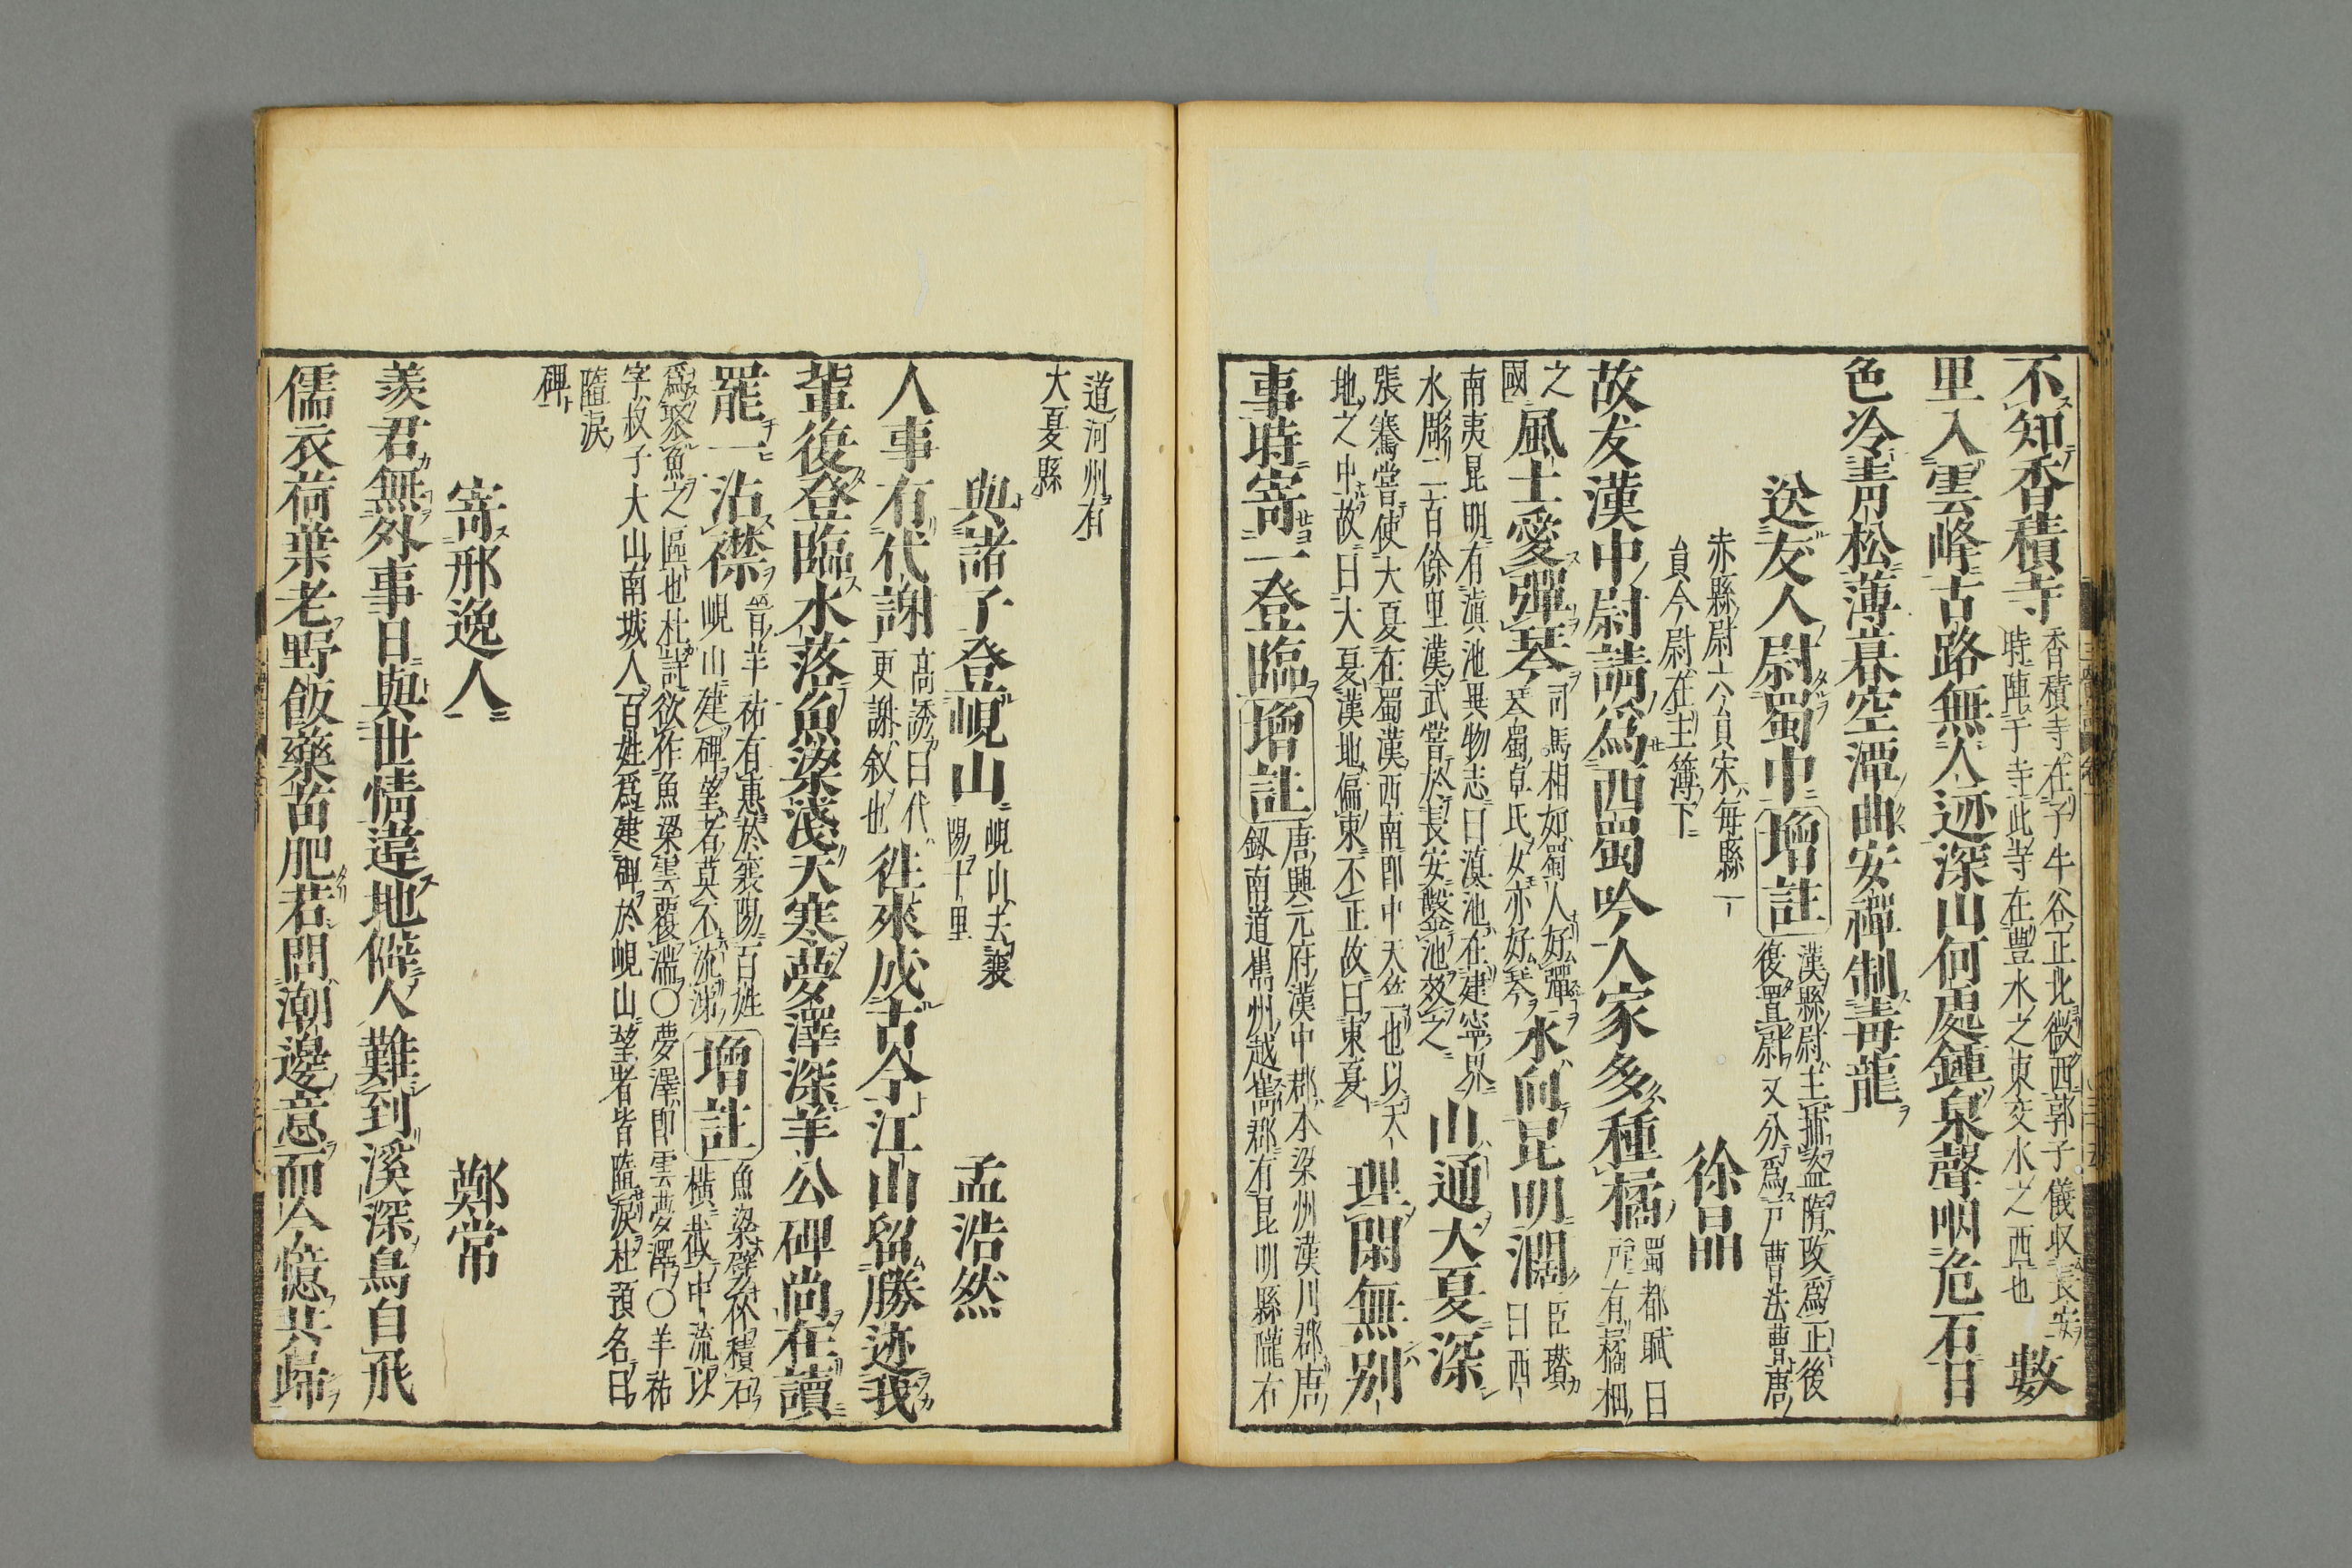 不知香積寺 香積寺在子午谷正北微西郭子儀収長安
時陣于寺此寺在豐水之東交水之西也 數
里入雲峰古路無人迹深山何處鐘泉聲咽危石日
色冷青松薄暮空潭曲安禪制毒龍
送友人尉蜀中 增註 漢縣尉主捕盜隋改爲正後
後置尉又分爲戸曹法曹唐
赤縣尉六員宋每縣一
員今尉在主簿下
徐晶
故友漢中尉請爲西蜀吟人家多種橘 蜀都賦曰
戸有橘柚
之
國 風土愛彈琴 司馬相如蜀人好彈
琴蜀卓氏女亦好琴 水向昆明濶 臣瓚
曰西
南夷昆明有滇池異物志曰滇池在建寧界
水彫二百餘里漢武嘗於長安鑿池效之 山通大夏深
張騫嘗使大夏在蜀漢西南即中天竺也以天
地之中故曰大夏漢地偏東不正故曰東夏 理閑無別
事時寄一登臨 增註 唐興元府漢中郡本梁州漢川郡唐
釼南道嶲州越嶲郡有昆明縣隴右
道河州有
大夏縣
與諸子登峴山 峴山去襄
陽十里 孟浩然
人事有代謝 高誘曰代
更謝叙也 徃來成古今江山留勝迹我
輩後登臨水落魚梁淺天寒夢澤深羊公碑尚在讀
罷一沾襟 晉羊祐有惠於襄陽百姓
峴山建碑望者莫不流涕 增註 魚梁襞竹積石
橫截中流以
爲聚魚之區也杜詩欲作魚梁雲覆湍〇夢澤即雲夢澤〇羊祐
字叔子大山南城人百姓爲建碑於峴山望者皆隨淚杜預名曰
隨淚
碑
寄邢逸人 鄭常
羨君無外事日與世情違地僻人難到溪深鳥自飛
儒衣荷葉老野飯藥苗肥若問潮邊意而今憶共歸